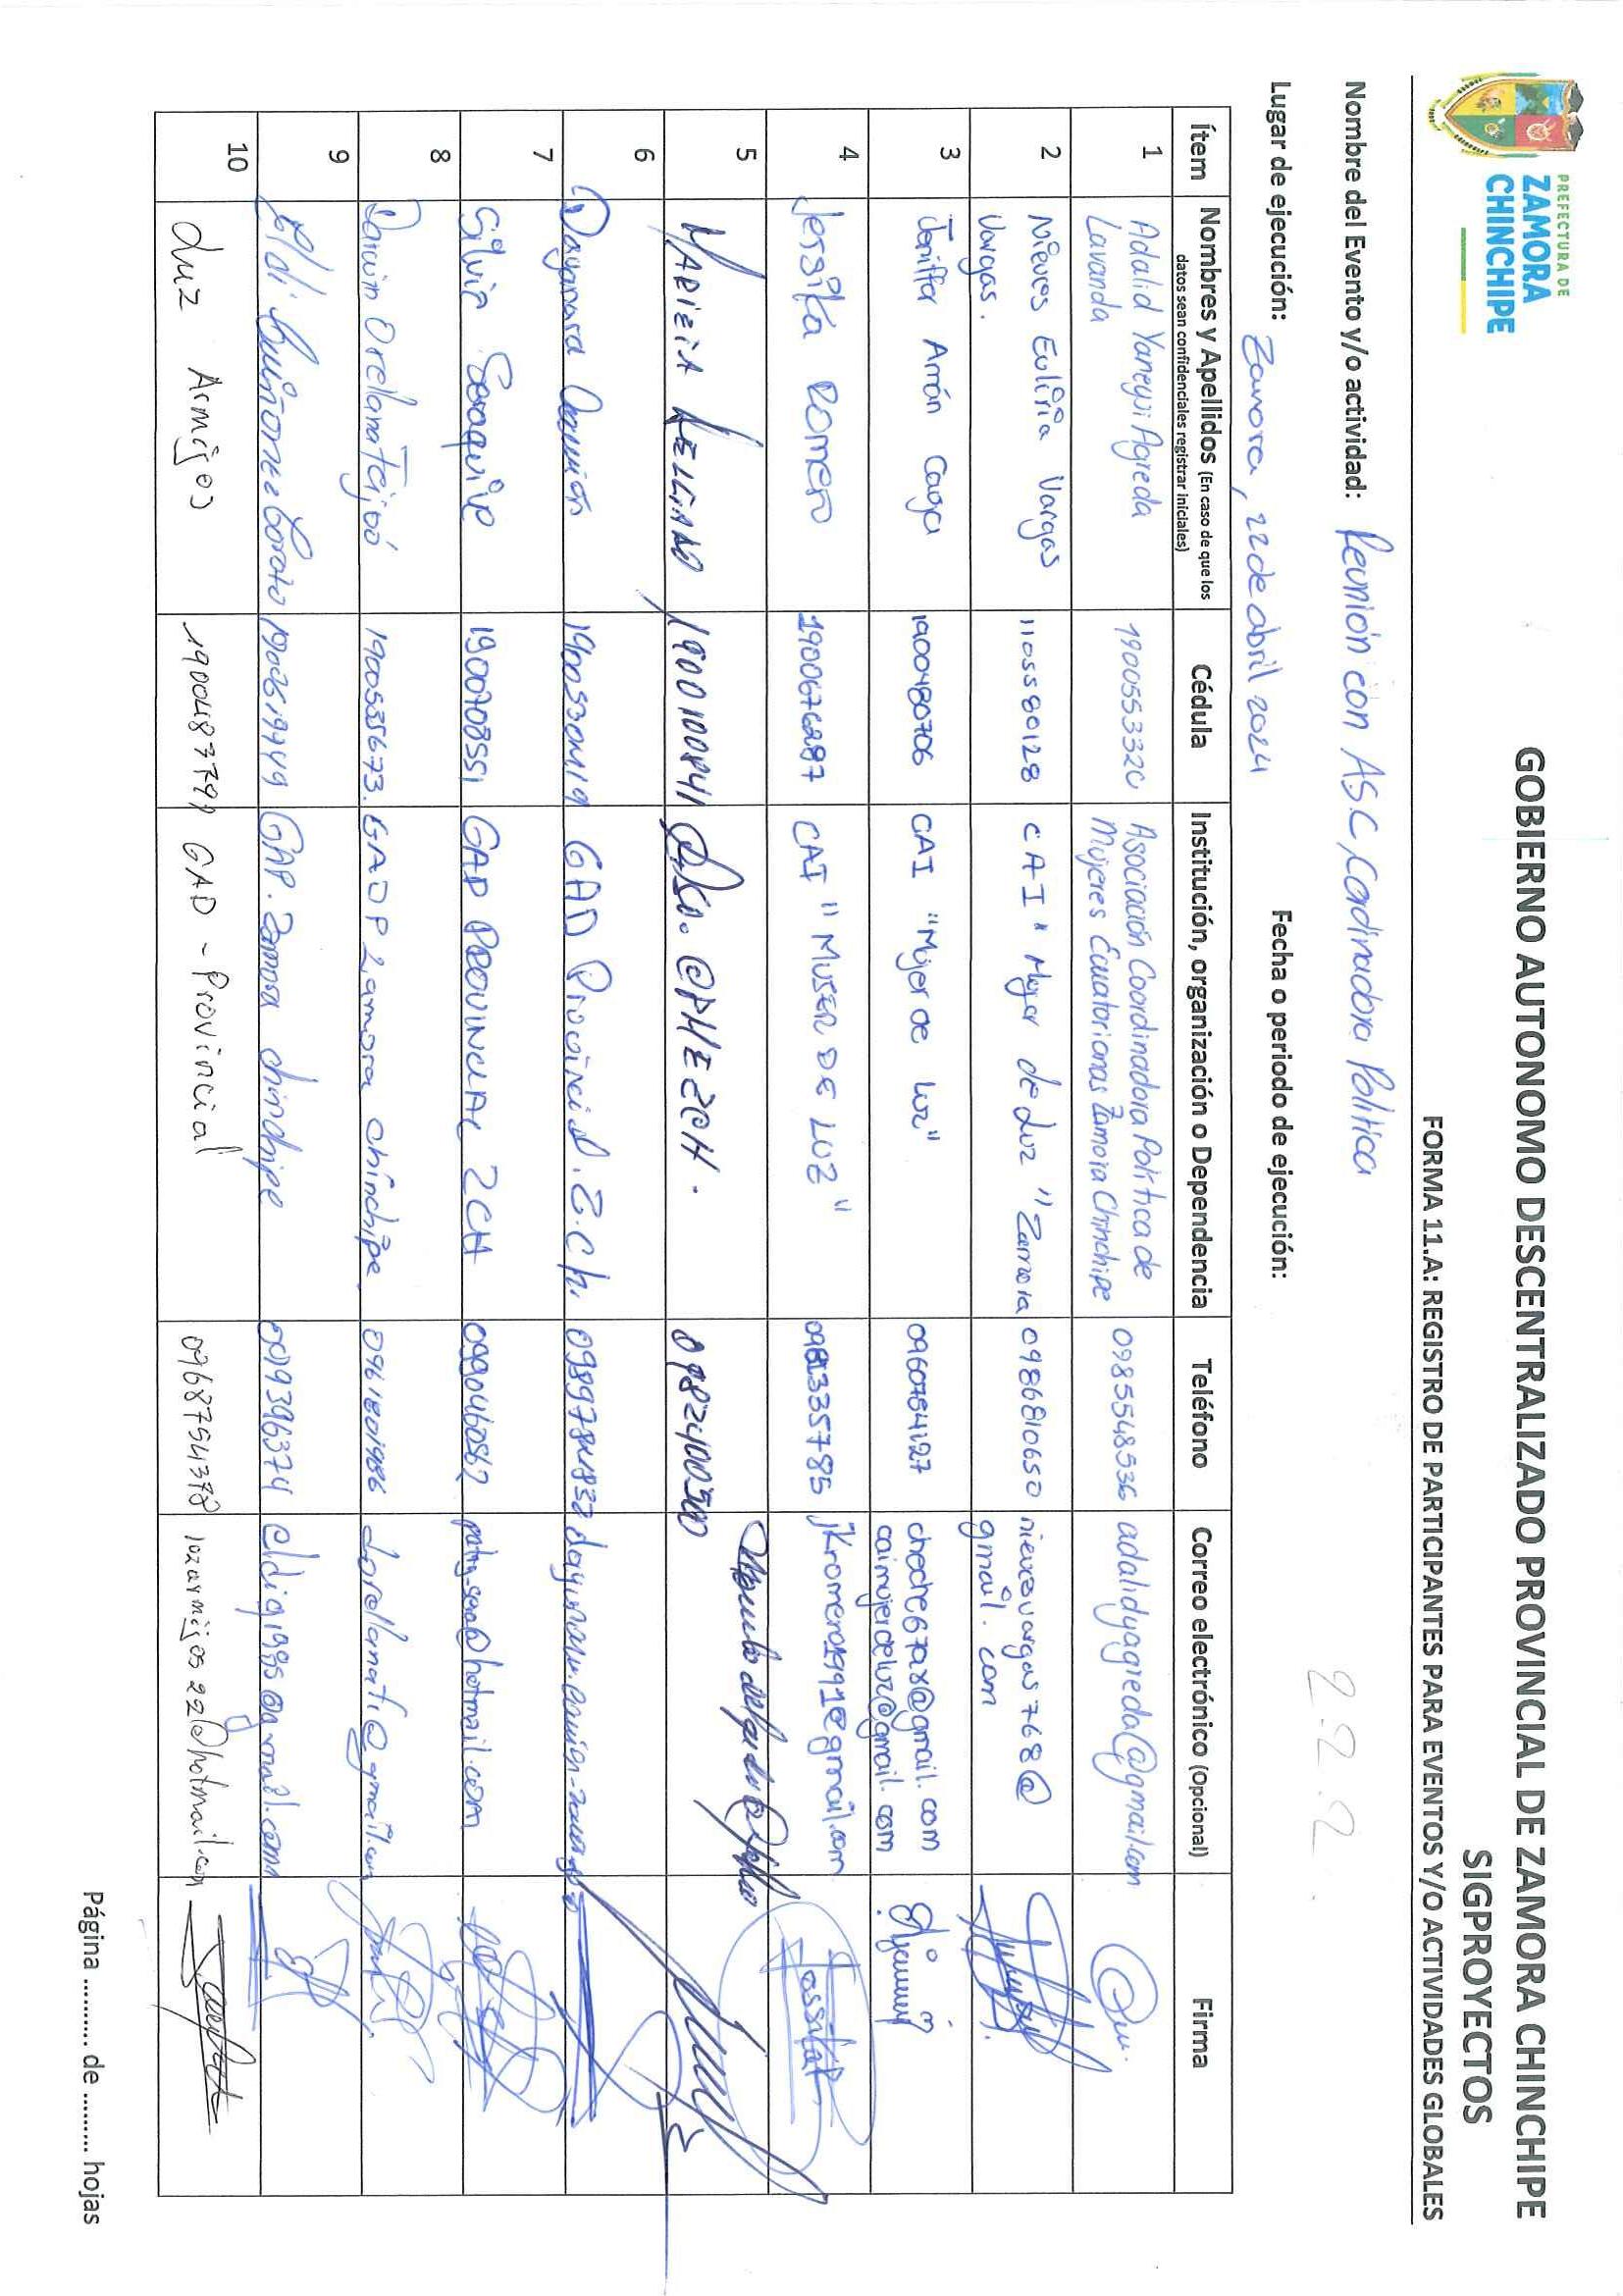 PREFECTURA DE
ZAMORA
CHINCHIPE
GOBIERNO AUTONOMO DESCENTRALIZADO PROVINCIAL DE ZAMORA CHINCHIPE
SIGPROYECTOS
FORMA 11.A: REGISTRO DE PARTICIPANTES PARA EVENTOS Y/O ACTIVIDADES GLOBALES
2.2.2
Nombre del Evento y/o actividad: Reunión con ASC, Cordinadora Política
Lugar de ejecución: Zamora, 22 de abril 2024 Fecha o periodo de ejecución:
Ítem Nombres y Apellidos (En caso de que los datos sean confidenciales registrar iniciales) Cédula Institución, organización o Dependencia Teléfono Correo electrónico (Opcional) Firma
1 Adalid Yanequi Agreda Lavanda 190055332 Asociación Coordinadora Política de Mujeres Ecuatorianas Zamora Chinchipe 0985548536 adalidyagreda@gmail.com
2 Nieves Euliria Vargas Vargas. 1105580128 CAI "Mujer de Luz" Zamora 0986810650 nievesvargas768@gmail.com
3 Jeniffer Armón Caaga 1900480706 CAI "Mujer de Luz" 0960784127 cheche67ar@gmail.com caimujerdeluz@gmail.com
4 Jessika Romero 1900676287 CAI "MUJER DE LUZ" 0981335785 jkromero1991@gmail.com
5 1900100841 0982400300
6 Dayanara GAD Provincial. Z. Ch.
7 Silvia 1900708551 GAD PROVINCIAL ZCH 0990460562 @hotmail.com
8 Darwin Orellana Tejpó 1900535673. GADP Zamora Chinchipe 0961801986 dorellanati@gmail.com
9 Eldi Quiñonez GAP. Zamora Chinchipe 0939396374 eldiq1995@gmail.com
10 Luz Armijos GAD - Provincial luzarmijos22@hotmail.com
Página ......... de ......... hojas